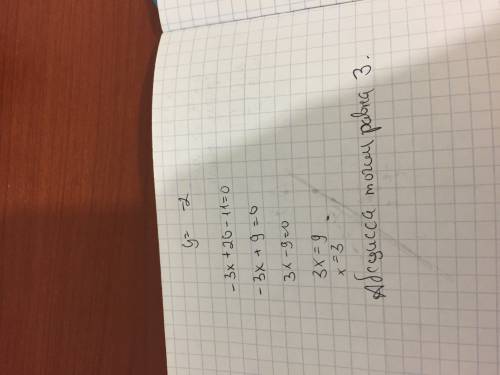 y = -2
-3x+20-11=0
-3x+9=0
3x-9=0
3x=9
x=3
Абсцисса точки равна 3.